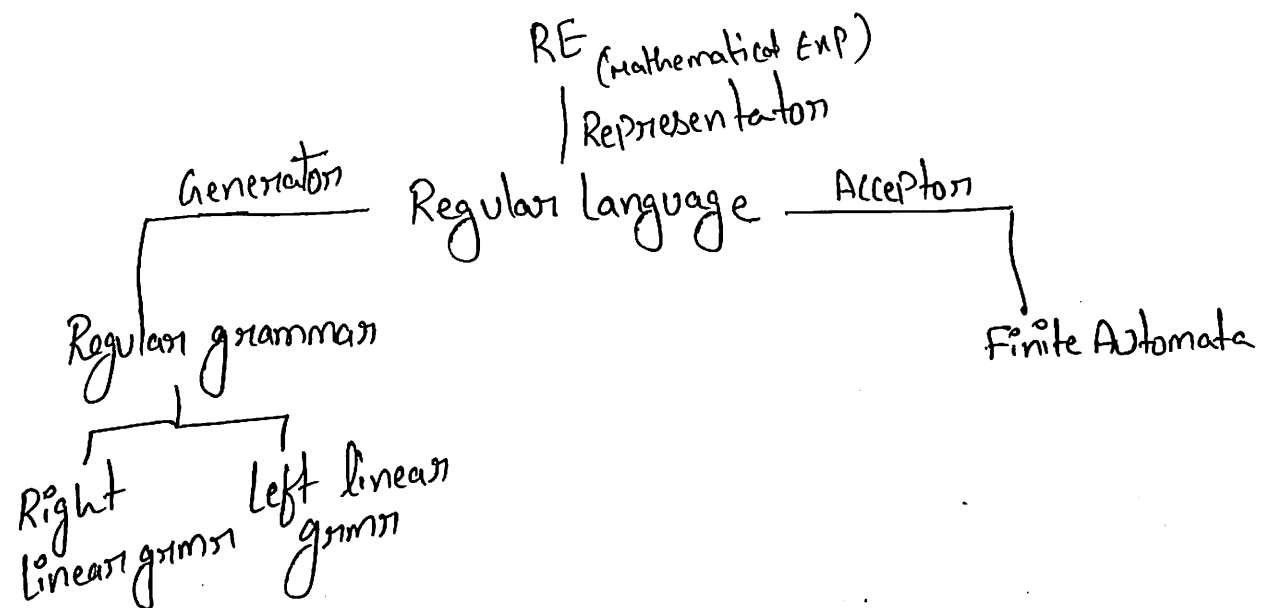 RE (Mathematical Exp)
Representator
Generator
Regular Language
Acceptor
Regular grammar
Finite Automata
Right
linear grmr
Left linear
grmr